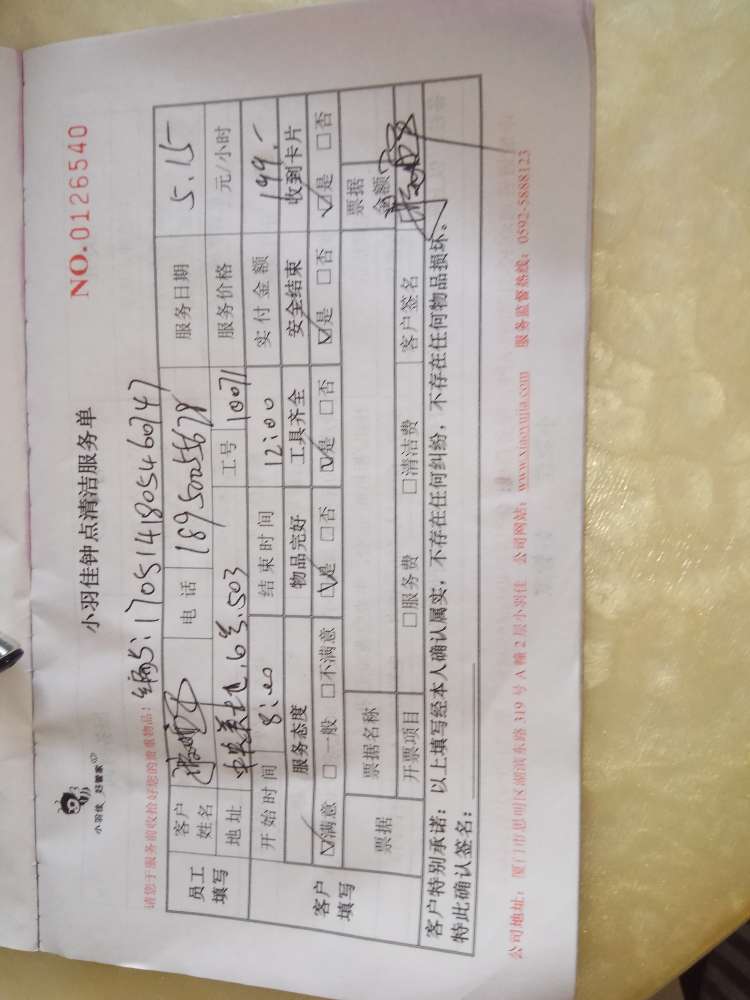 小羽佳 好管家
小羽佳钟点清洁服务单
NO.0126540
请您于服务前收拾好您的贵重物品!
编号:1705141805460747
员工填写 客户姓名 电话 18950025678 服务日期 5.15
地址 中央美地.6号.503 工号 10071 服务价格 元/小时
开始时间 8:00 结束时间 12:00 实付金额 199.-
客户填写 服务态度 物品完好 工具齐全 安全结束 收到卡片
☑满意 □一般 □不满意 ☑是 □否 ☑是 □否 ☑是 □否 ☑是 □否
票据 票据名称 票据金额
开票项目 □服务费 □清洁费 客户签名
客户特别承诺:以上填写经本人确认属实,不存在任何纠纷,不存在任何物品损坏。
特此确认签名:
公司地址:厦门市思明区湖滨东路 319 号 A 幢 2 层小羽佳 公司网站:www.xiaoyujia.com 服务监督热线:0592-5888123